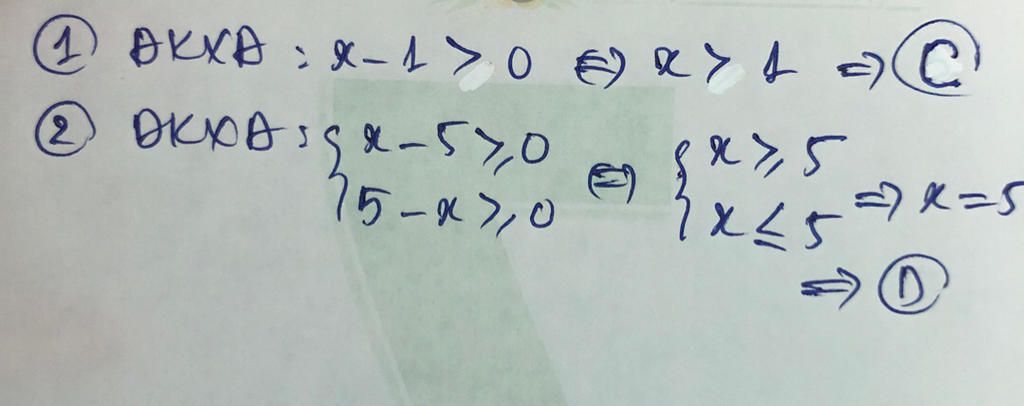 ① ĐKXĐ : x - 1 > 0 ⇔ x > 1 ⇒ Ⓒ
② ĐKXĐ : { x - 5 ≥ 0 ⇔ { x ≥ 5
5 - x ≥ 0 x ≤ 5 ⇒ x = 5
⇒ Ⓓ